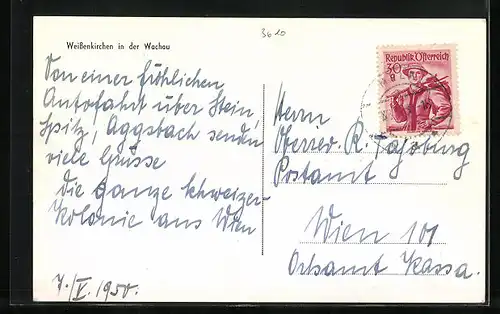 Weißenkirchen in der Wachau
3610
Von einer fröhlichen
Autofahrt über Stein,
Spitz, Aggsbach senden
viele Grüsse
die ganze Schweizer-
Kolonie aus Wien
7./V. 1950.
Republik Österreich
30
Herrn
Oberrev. R.
Postamt
Wien 101
Ortsamt Kassa.